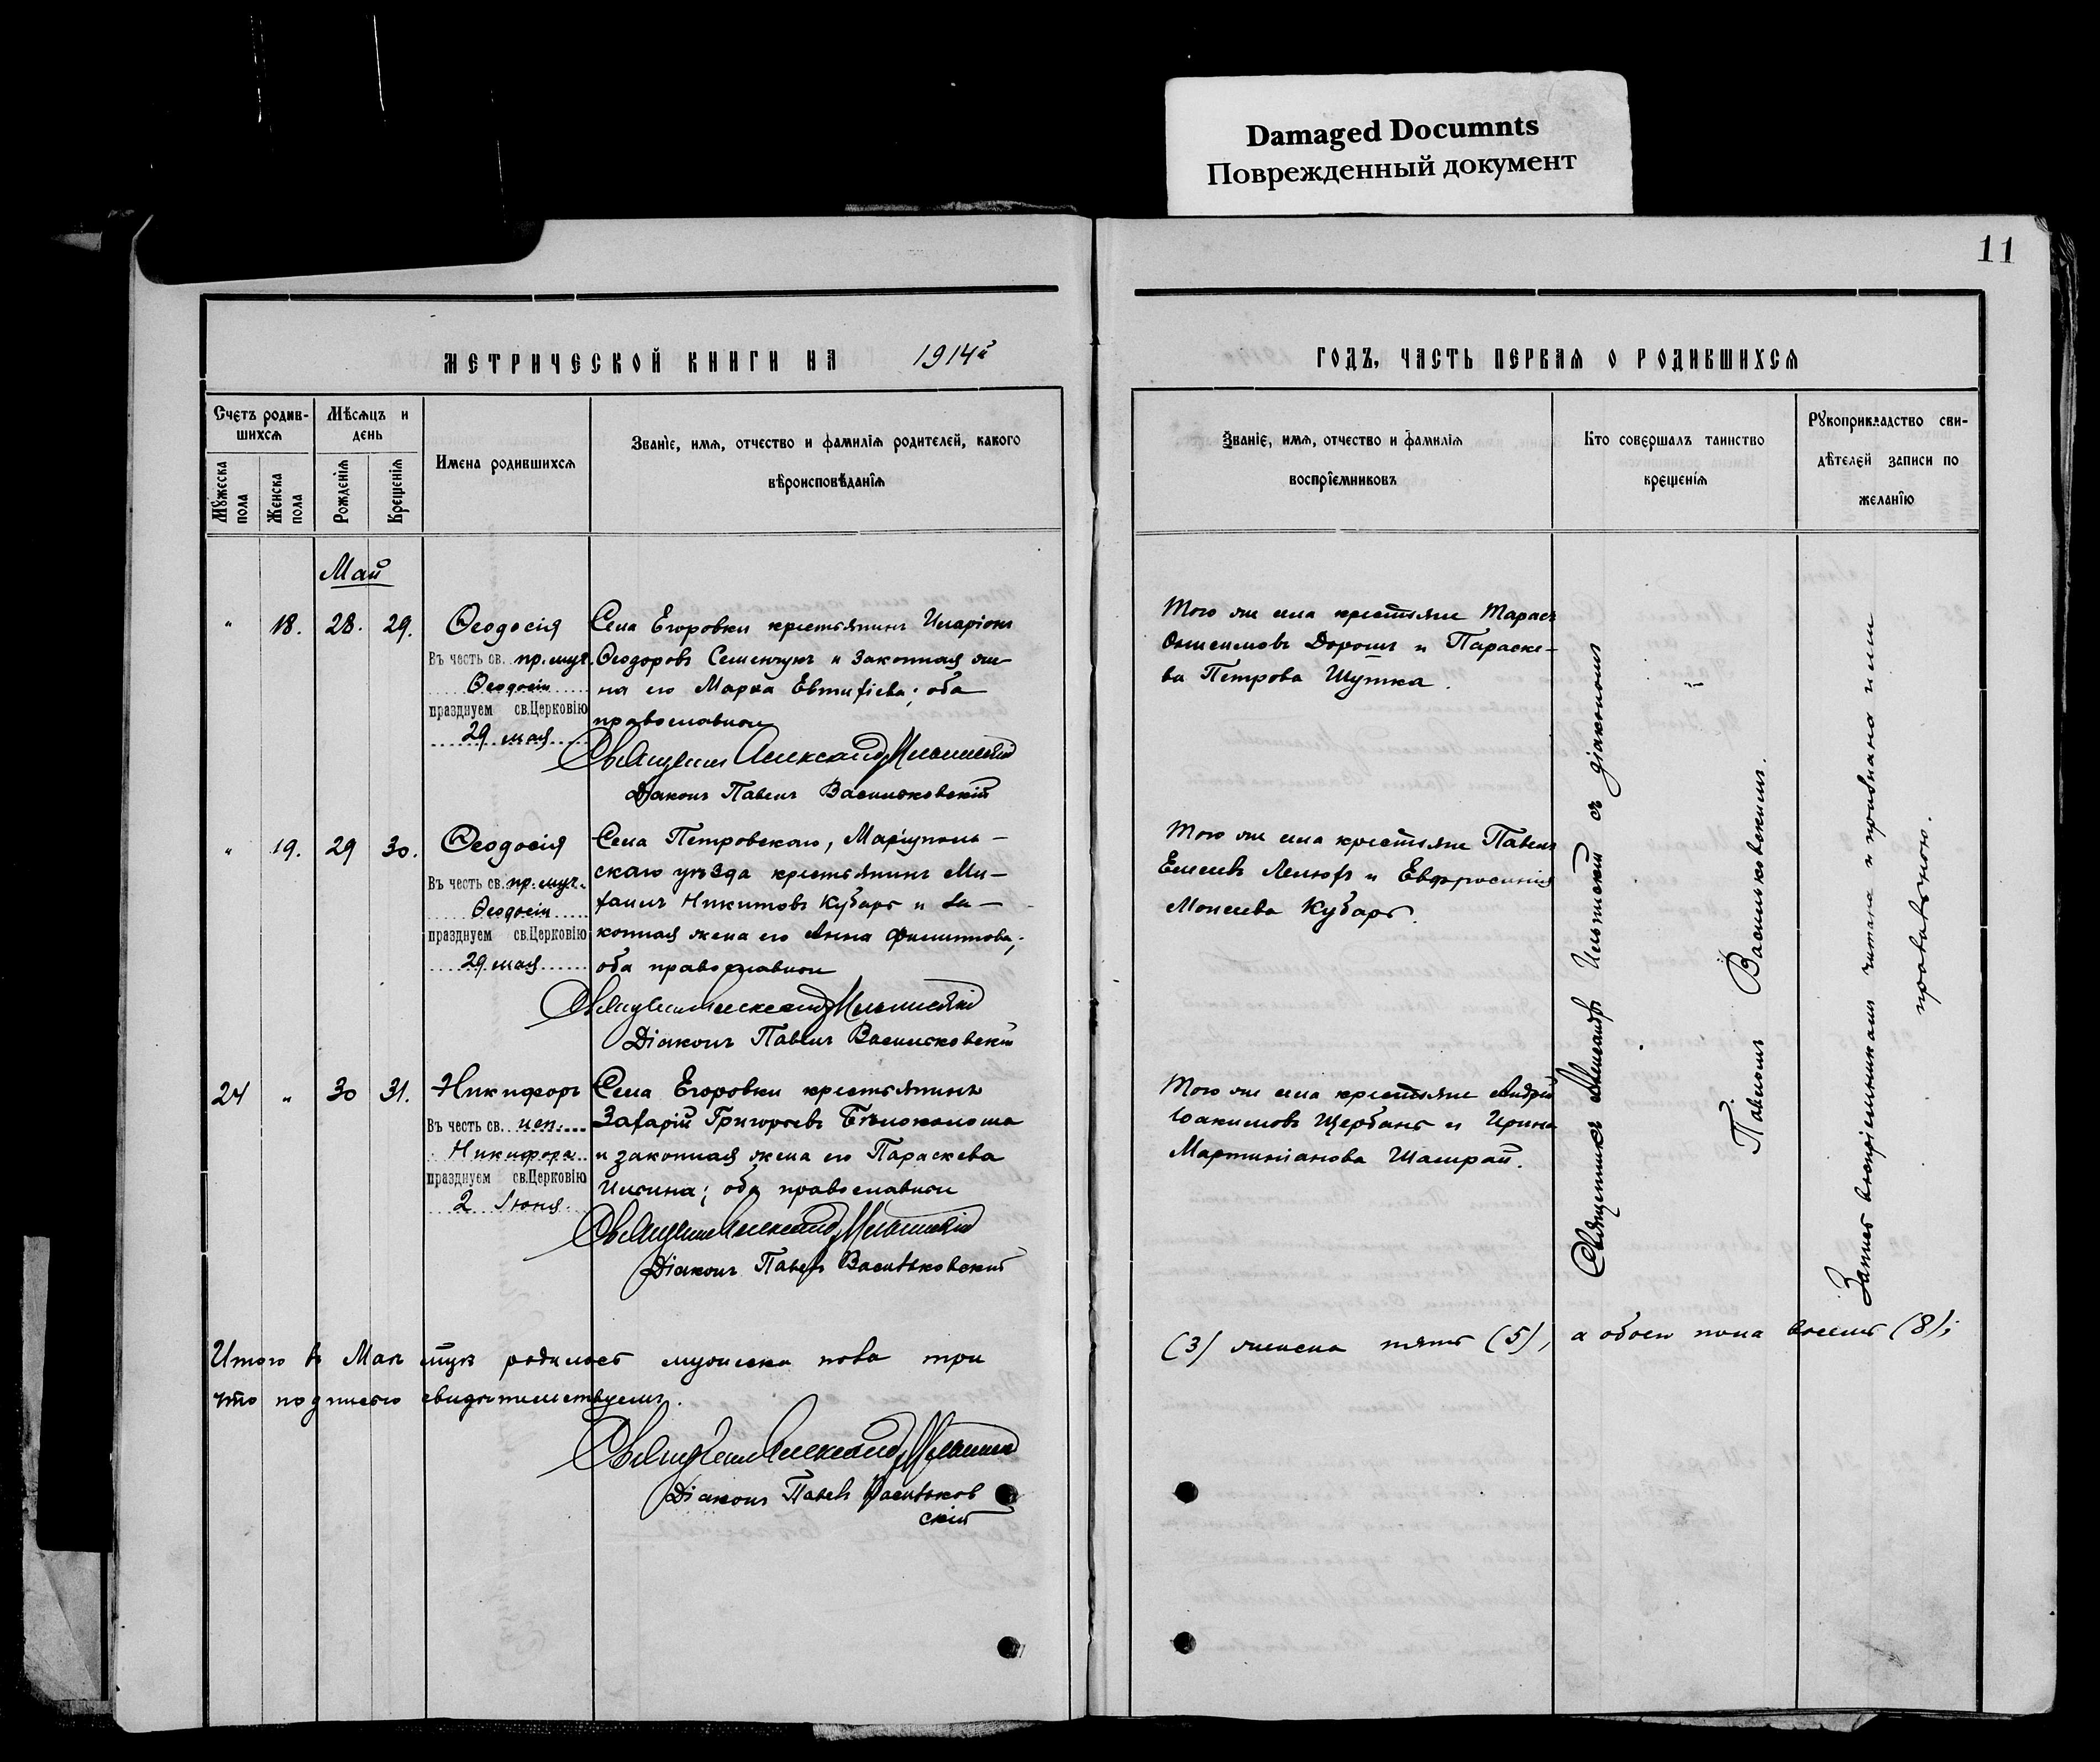 Damaged Documnts
Поврежденный документ
11
МЕТРИЧЕСКОЙ КНИГИ НА 1914й
ГОДЪ, ЧАСТЬ ПЕРВАЯ О РОДИВШИХСЯ
Счетъ родив-
шихся
Мужеска пола
Женска пола
Мѣсяцъ и
день
Рожденія
Крещенія
Имена родившихся
Званіе, имя, отчество и фамилія родителей, какого
вѣроисповѣданія
Званіе, имя, отчество и фамилія
воспріемниковъ
Кто совершалъ таинство
крещенія
Рукоприкладство сви-
дѣтелей записи по
желанію
Май
" 18. 28. 29.
Ѳеодосія
Въ честь св. пр. муч.
Ѳеодосіи
празднуем св.Церковію
29 мая
Села Егоровки крестьянинъ Иларіонъ
Ѳеодоровъ Семенчукъ и законная же-
на его Марѳа Евтихіева; оба
православные
Священникъ Александръ
Діаконъ Павелъ Васильковскій
Того же села крестьяне Тарасъ
Онисимовъ Дорошъ и Параске-
ва Петрова Шутка.
" 19. 29 30.
Ѳеодосія
Въ честь св. пр. муч.
Ѳеодосіи
празднуем св.Церковію
29 мая
Села Петровскаго, Маріуполь-
скаго уѣзда крестьянинъ Ми-
хаилъ Никитовъ Кубарь и за-
конная жена его Анна Филиппова;
оба православные
Священникъ Александръ
Діаконъ Павелъ Васильковскій
Того же села крестьяне Павелъ
Елисеевъ и Евфросинія
Моисеева Кубарь.
24 " 30 31.
Никифоръ
Въ честь св. исп.
Никифора
празднуем св.Церковію
2 Іюня
Села Егоровки крестьянинъ
Захарій Григорьевъ Бѣлоконоша
и законная жена его Параскева
Ильина; оба православные
Священникъ Александръ
Діаконъ Павелъ Васильковскій
Того же села крестьяне Андрей
Іоакимовъ Щербань и Ирина
Мартиніанова Шамрай.
Священникъ Александръ съ діакономъ
Павломъ Васильковскимъ.
Запись воспріемникамъ читана и признана ими
правильною.
Итого въ Маѣ м-цѣ родилось мужеска пола три
(3) женска пять (5), а обоего пола восемь (8);
что подписью свидѣтельствуемъ.
Священникъ Александръ
Діаконъ Павелъ Васильков
скій